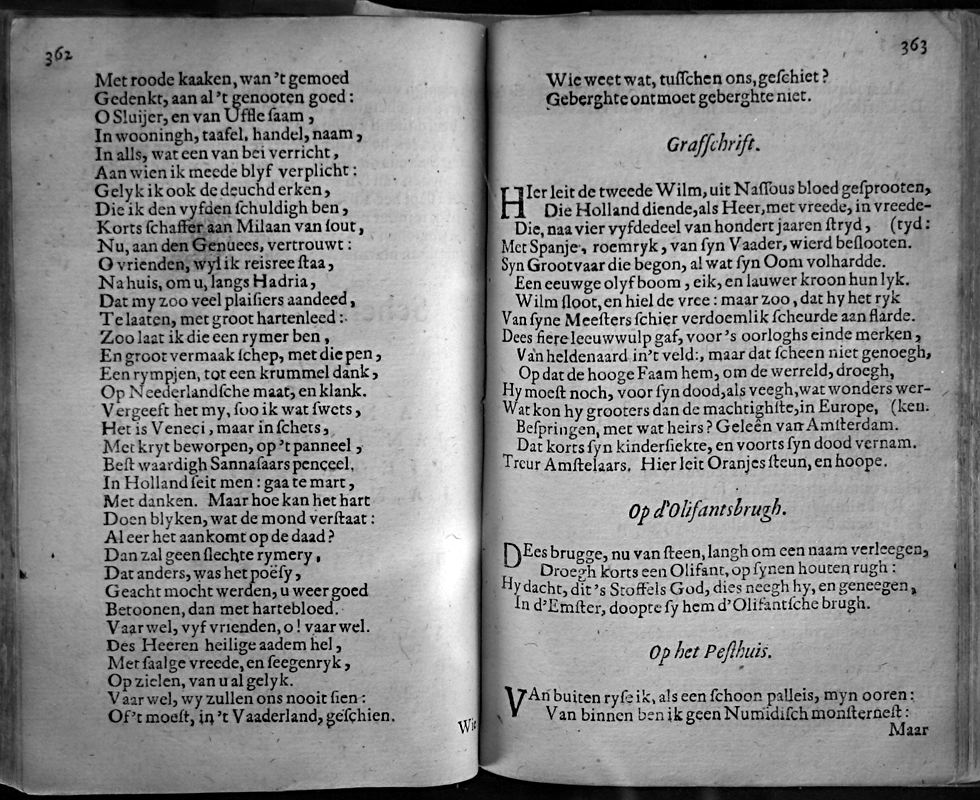 362
Met roode kaaken, wan 't gemoed
Gedenkt, aan al 't genooten goed:
O Sluijer, en van Uffle ſaam,
In wooningh, taafel, handel, naam,
In alls, wat een van bei verricht,
Aan wien ik meede blyf verplicht:
Gelyk ik ook de deuchd erken,
Die ik den vyfden ſchuldigh ben,
Korts ſchaffer aan Milaan van ſout,
Nu, aan den Genuees, vertrouwt:
O vrienden, wyl ik reisree ſtaa,
Na huis, om u, langs Hadria,
Dat my zoo veel plaiſiers aandeed,
Te laaten, met groot hartenleed:
Zoo laat ik die een rymer ben,
En groot vermaak ſchep, met die pen,
Een rympjen, tot een krummel dank,
Op Neederlandſche maat, en klank.
Vergeeft het my, ſoo ik wat ſwets,
Het is Veneci, maar in ſchets,
Met kryt beworpen, op 't panneel,
Beſt waardigh Sannaſaars penceel.
In Holland ſeit men: gaa te mart,
Met danken. Maar hoe kan het hart
Doen blyken, wat de mond verſtaat:
Al eer het aankomt op de daad?
Dan zal geen ſlechte rymery,
Dat anders, was het poëſy,
Geacht mocht werden, u weer goed
Betoonen, dan met hartebloed.
Vaar wel, vyf vrienden, o! vaar wel.
Des Heeren heilige aadem hel,
Met ſaalge vreede, en ſeegenryk,
Op zielen, van u al gelyk.
Vaar wel, wy zullen ons nooit ſien:
Of 't moeſt, in 't Vaaderland, geſchien.
Wie
363
Wie weet wat, tuſſchen ons, geſchiet?
Geberghte ontmoet geberghte niet.
Grafſchrift.
HIer leit de tweede Wilm, uit Naſſous bloed geſprooten,
Die Holland diende, als Heer, met vreede, in vreede-
Die, naa vier vyfdedeel van hondert jaaren ſtryd, (tyd:
Met Spanje, roemryk, van ſyn Vaader, wierd beſlooten.
Syn Grootvaar die begon, al wat ſyn Oom volhardde.
Een eeuwge olyf boom, eik, en lauwer kroon hun lyk.
Wilm ſloot, en hiel de vree: maar zoo, dat hy het ryk
Van ſyne Meeſters ſchier verdoemlik ſcheurde aan flarde.
Dees fiere leeuwwulp gaf, voor 's oorloghs einde merken,
Van heldenaard in 't veld:, maar dat ſcheen niet genoegh,
Op dat de hooge Faam hem, om de werreld, droegh,
Hy moeſt noch, voor ſyn dood, als veegh, wat wonders wer-
Wat kon hy grooters dan de machtighſte, in Europe, (ken.
Beſpringen, met wat heirs? Geleên van Amſterdam.
Dat korts ſyn kinderſiekte, en voorts ſyn dood vernam.
Treur Amſtelaars. Hier leit Oranjes ſteun, en hoope.
Op d'Olifantsbrugh.
DEes brugge, nu van ſteen, langh om een naam verleegen,
Droegh korts een Olifant, op ſynen houten rugh:
Hy dacht, dit 's Stoffels God, dies neegh hy, en geneegen,
In d'Emſter, doopte ſy hem d'Olifantſche brugh.
Op het Peſthuis.
VAn buiten ryſe ik, als een ſchoon palleis, myn ooren:
Van binnen ben ik geen Numidiſch monſterneſt:
Maar